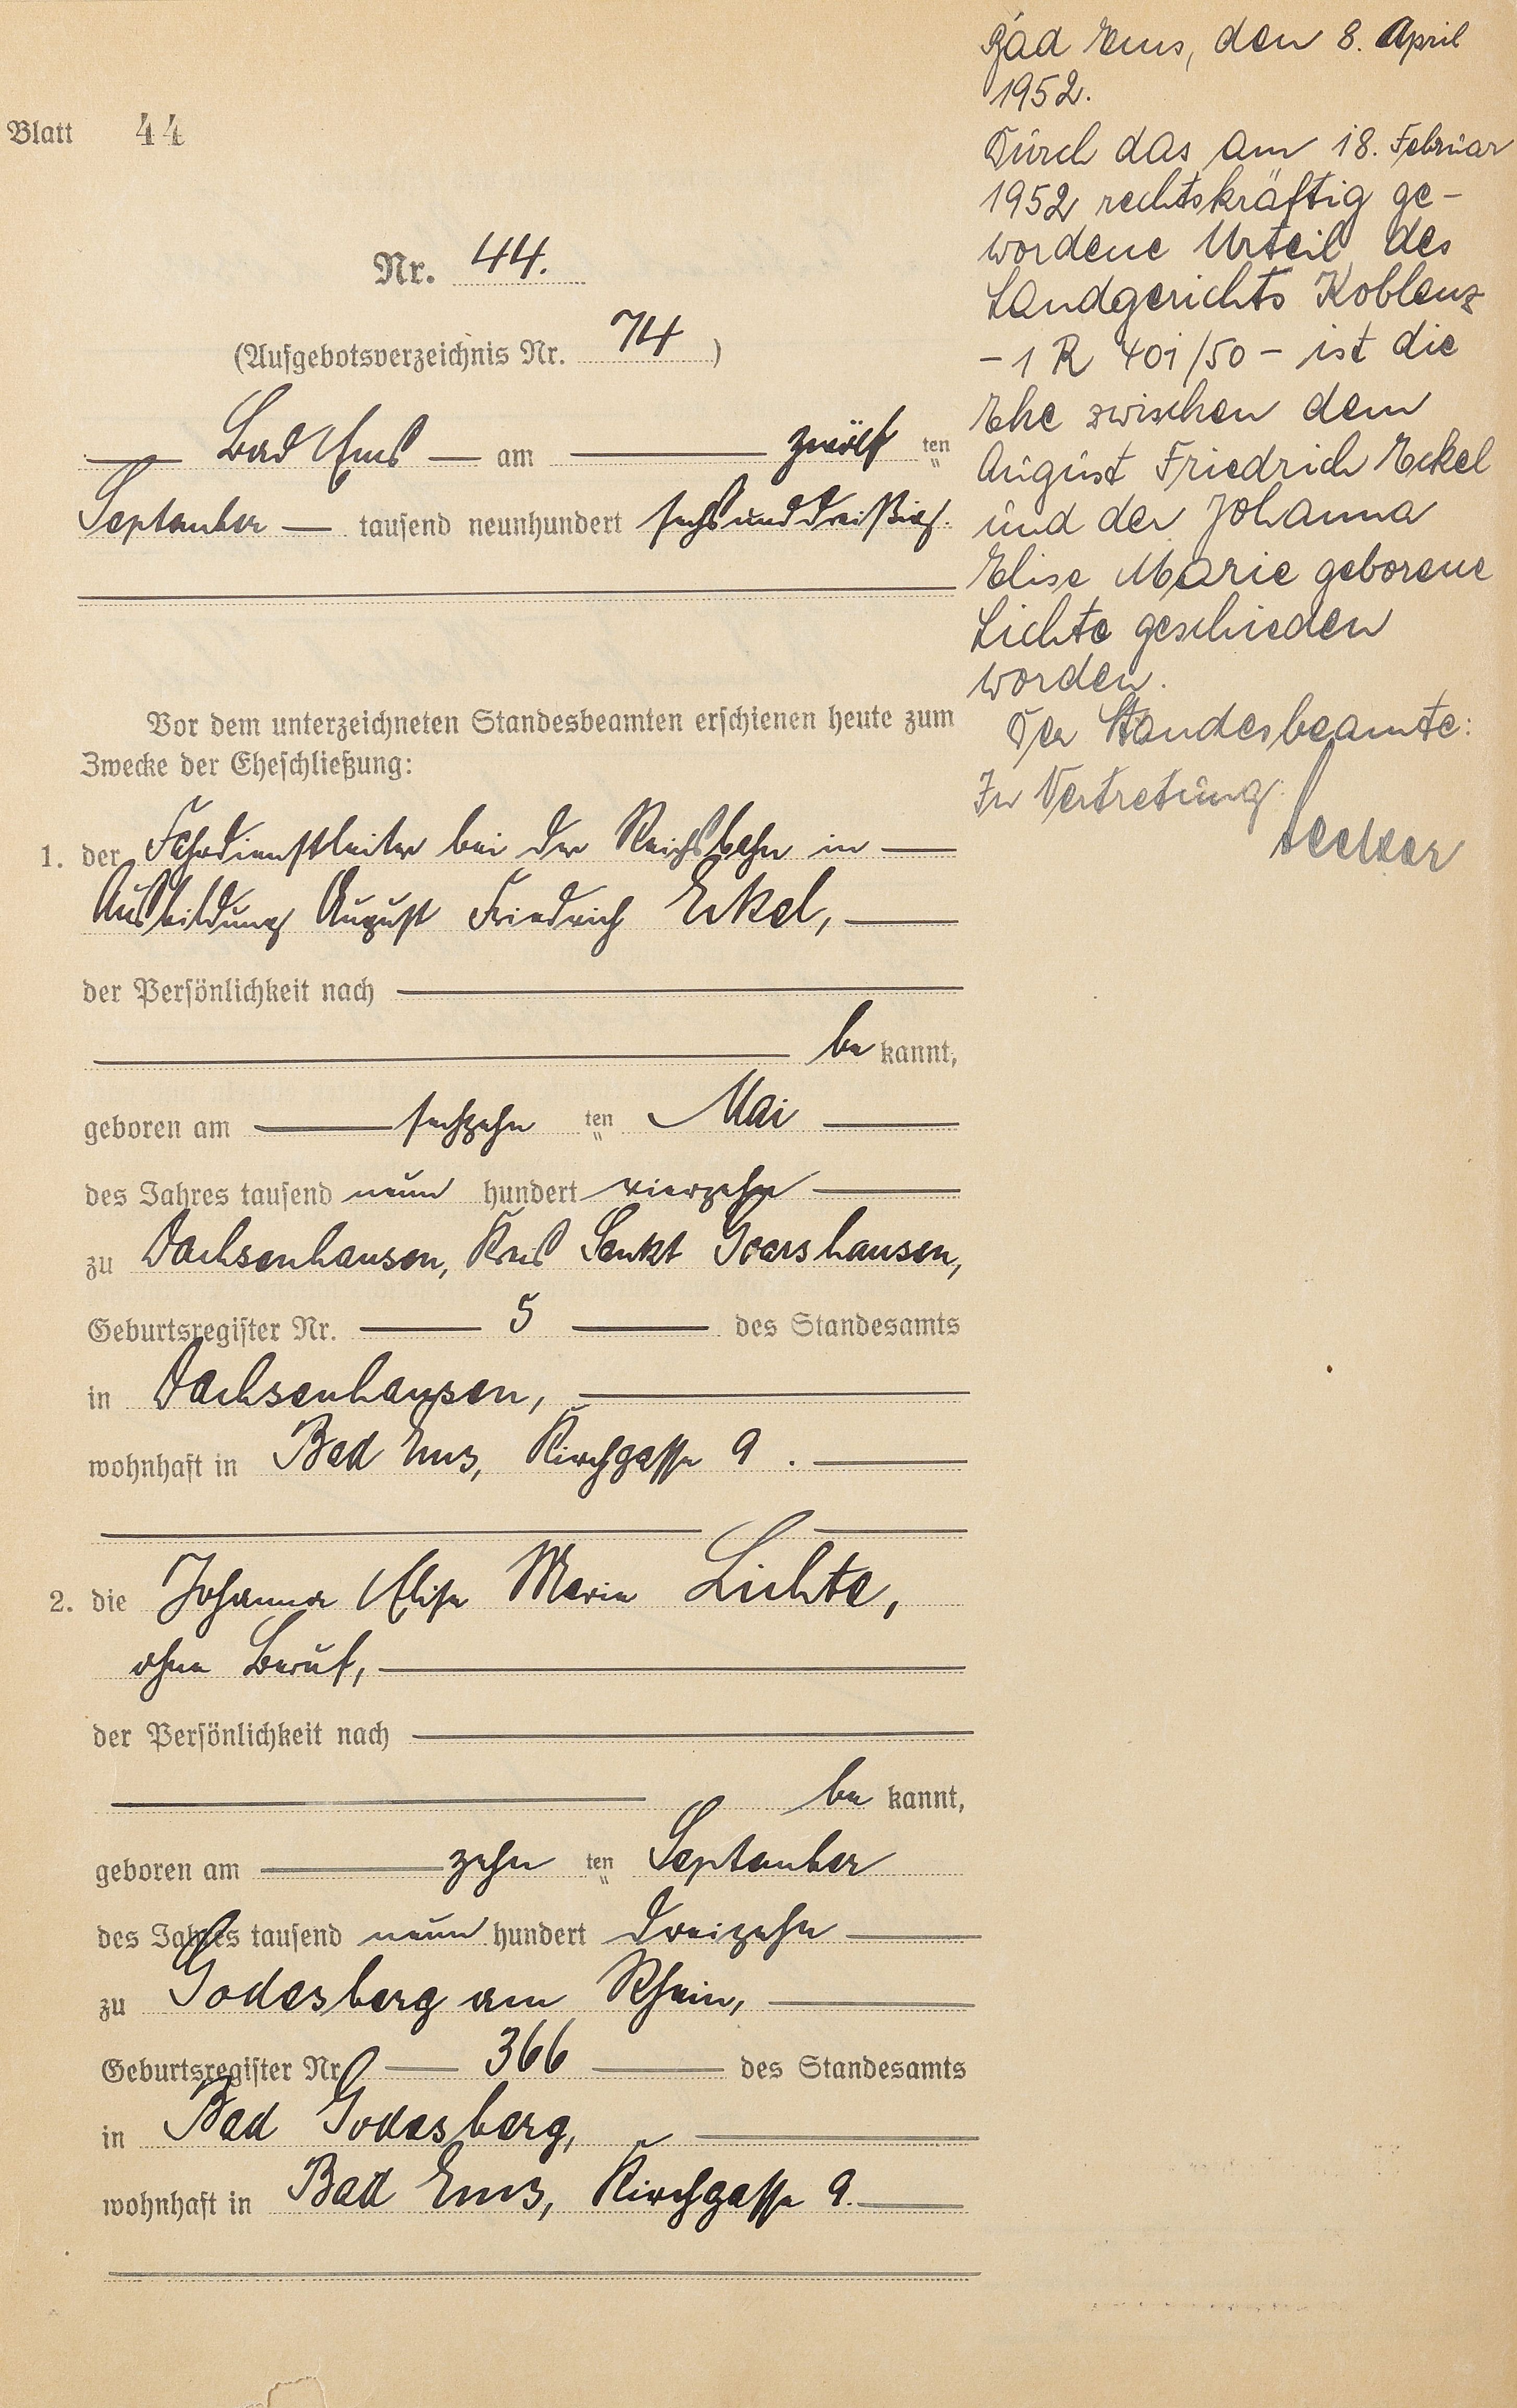 Blatt 44
Nr. 44.
(Aufgebotsverzeichnis Nr. 74)
Bad Ems — am — zwölf ten
September — tausend neunhundert sechsunddreißig.
Vor dem unterzeichneten Standesbeamten erschienen heute zum
Zwecke der Eheschließung:
1. der Fahrdienstleiter bei der Reichsbahn in —
Ausbildung August Friedrich Eckel, —
der Persönlichkeit nach —
— be kannt,
geboren am — sechzehn ten Mai —
des Jahres tausend neun hundert vierzehn —
zu Dachsenhausen, Kreis Sankt Goarshausen,
Geburtsregister Nr. — 5 — des Standesamts
in Dachsenhausen, —
wohnhaft in Bad Ems, Kirchgasse 9. —
2. die Johanna Elise Marie Lichte,
ohne Beruf, —
der Persönlichkeit nach —
— be kannt,
geboren am — zehn ten September
des Jahres tausend neun hundert dreizehn —
zu Godesberg am Rhein, —
Geburtsregister Nr. — 366 — des Standesamts
in Bad Godesberg, —
wohnhaft in Bad Ems, Kirchgasse 9. —
Bad Ems, den 8. April
1952.
Durch das am 18. Februar
1952 rechtskräftig ge-
wordene Urteil des
Landgerichts Koblenz
- 1 R 401/50 - ist die
Ehe zwischen dem
August Friedrich Eckel
und der Johanna
Elise Marie geborene
Lichte geschieden
worden.
Der Standesbeamte:
In Vertretung: